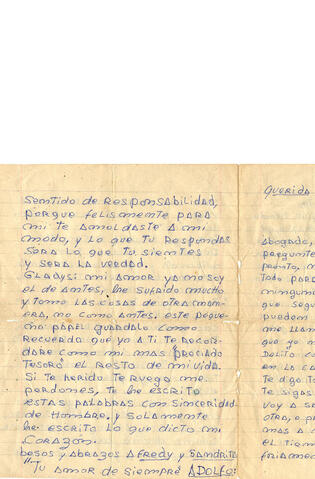 Sentido de Responsabilidad,
porque felismente para
mi te amoldaste a mi
modo, y lo que tu Respondas
sera lo que tu sientes
y sera la verdad.
Gladys: mi amor ya no soy
el de antes, he sufrido mucho
y tomo las cosas de otra man-
era, no como antes, este peque-
ño papel guardalo como
Recuerdo que yo a ti te Recor-
dare como mi mas preciado
tesoro el resto de mi vida.
Si te herido te Ruego me
perdones, te he escrito
estas palabras con sinceridad
de Hombre, y solamente
he escrito lo que dicto mi
Corazon.
besos y Abrazos Afredy y Sandrita
"Tu amor de siempre ADOLFO:
Querida
Abogado,
pregunte
pronto, m
Todo para
ningun
que segu
pueden
me llam
que yo n
Delito co
en la ca
Te digo To
Te sigas
voy a s
otra, e p
mas a c
el tiem